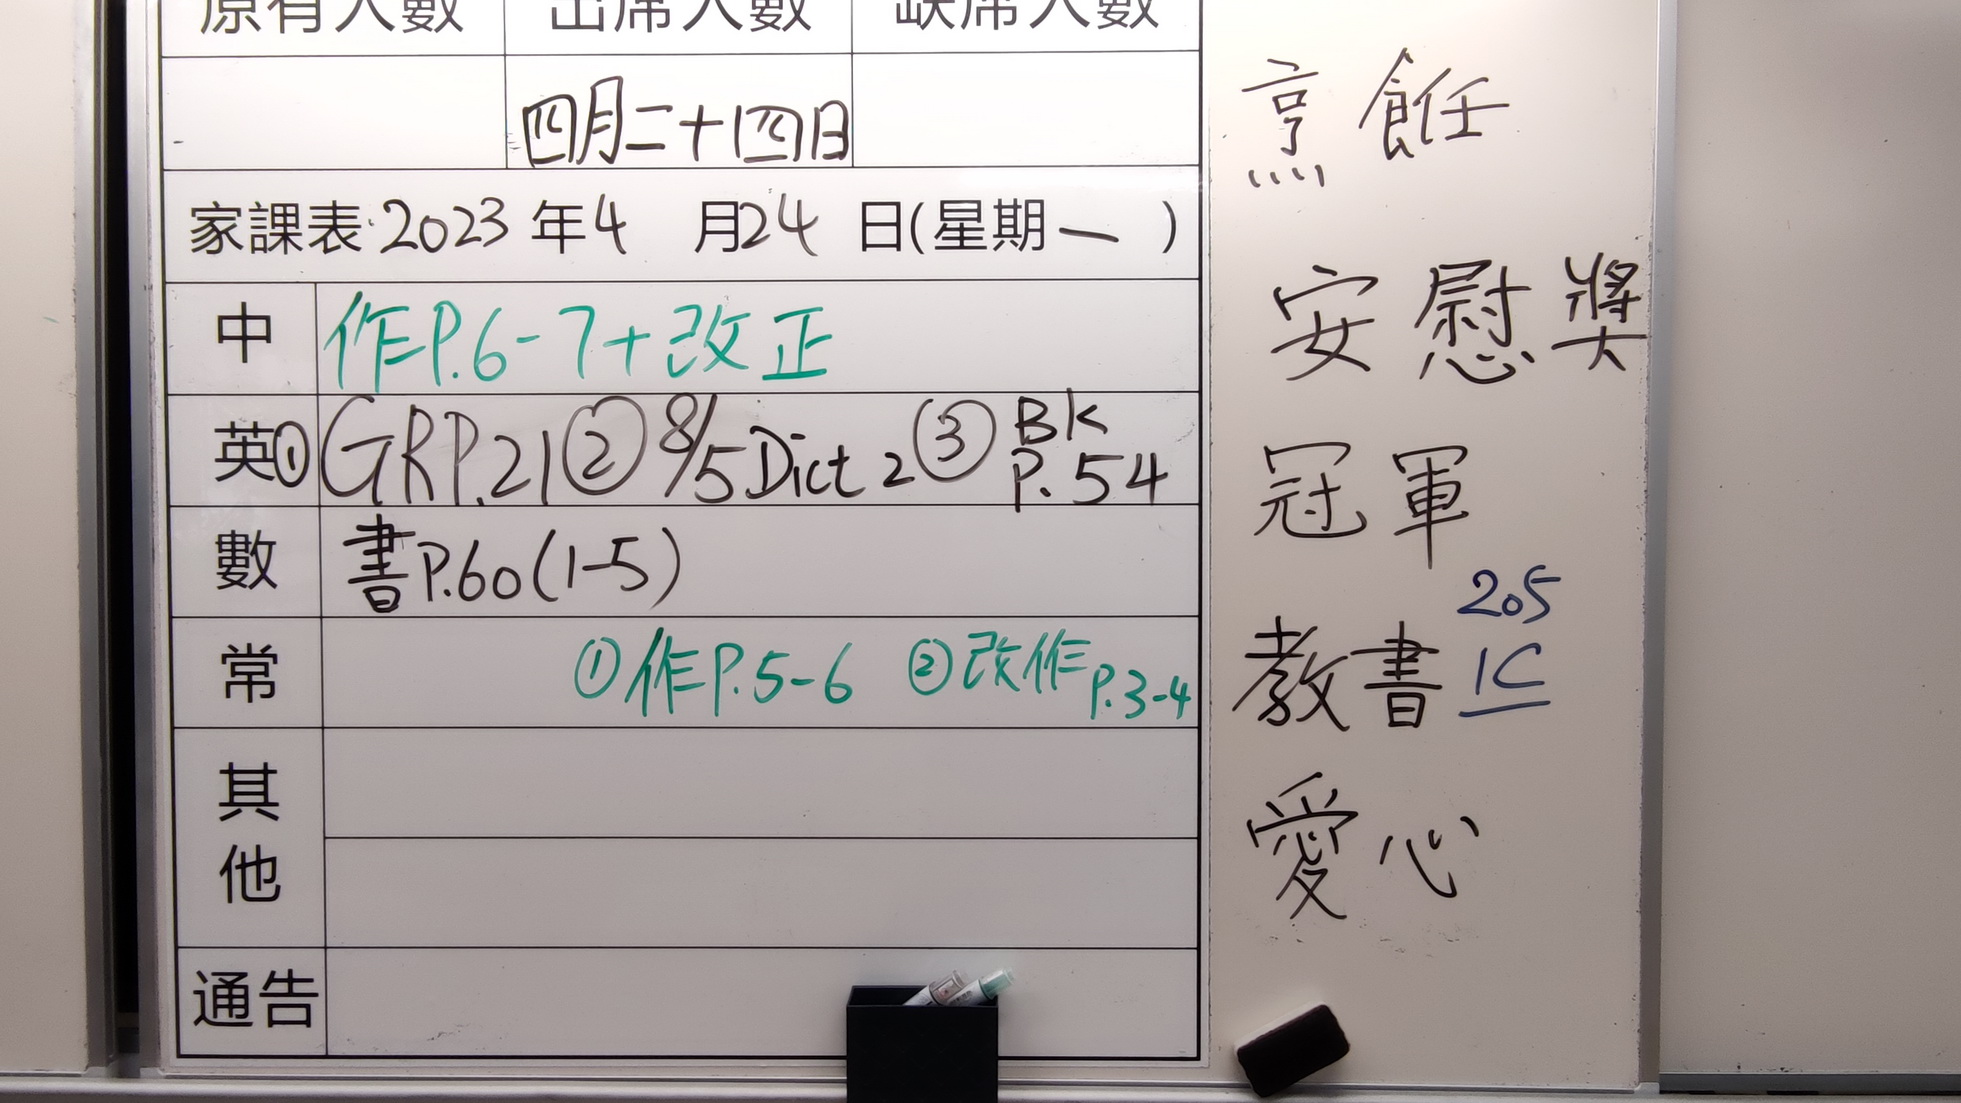 原有人數 出席人數 缺席人數
四月二十四日
家課表 2023 年 4 月 24 日(星期一)
中 作P.6-7+改正
英 ①GRP.21 ②8/5 Dict 2 ③BK P.54
數 書P.60(1-5)
常 ①作P.5-6 ②改作P.3-4
其他
通告
烹飪
安慰獎
冠軍
205
教書 1C
愛心